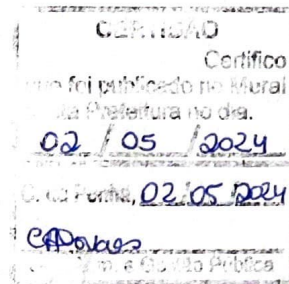 CERTIDÃO
Certifico
que foi publicado no Mural
desta Prefeitura no dia.
02 / 05 / 2024
da Penha, 02/05/2024
Pública